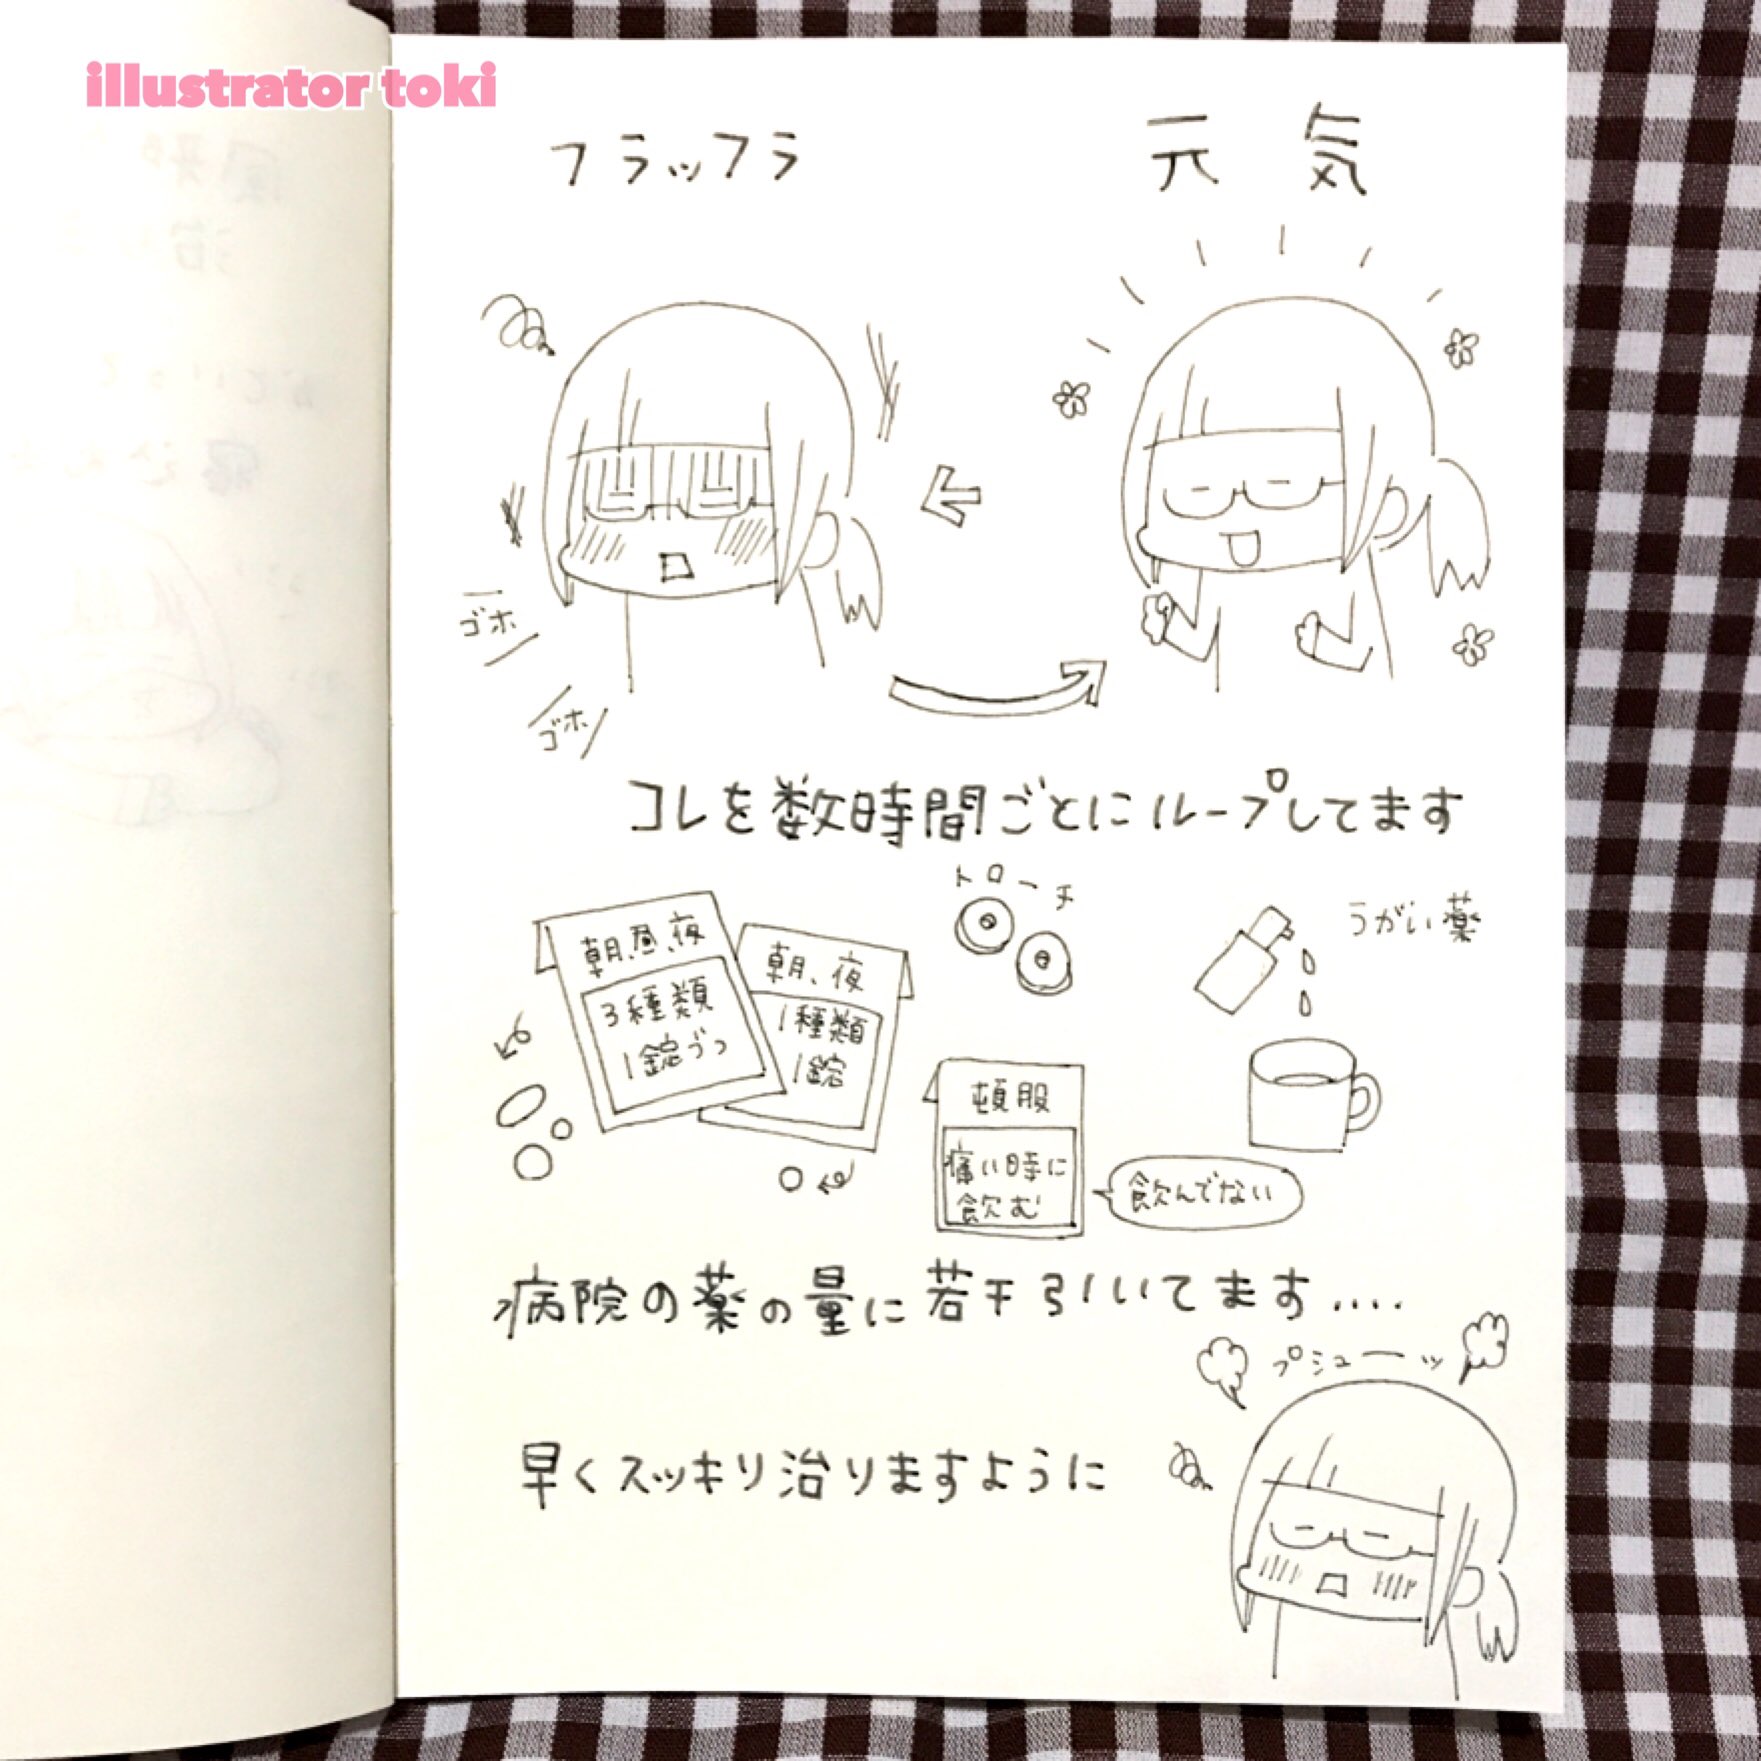 illustrator toki
フラッフラ
元気
ゴホ
ゴホ
コレを数時間ごとにループしてます
朝、昼、夜
3種類
1錠づつ
朝、夜
1種類
1錠
トローチ
うがい薬
頓服
痛い時に
飲む
飲んでない
病院の薬の量に若干引いてます....
プシューッ
早くスッキリ治りますように